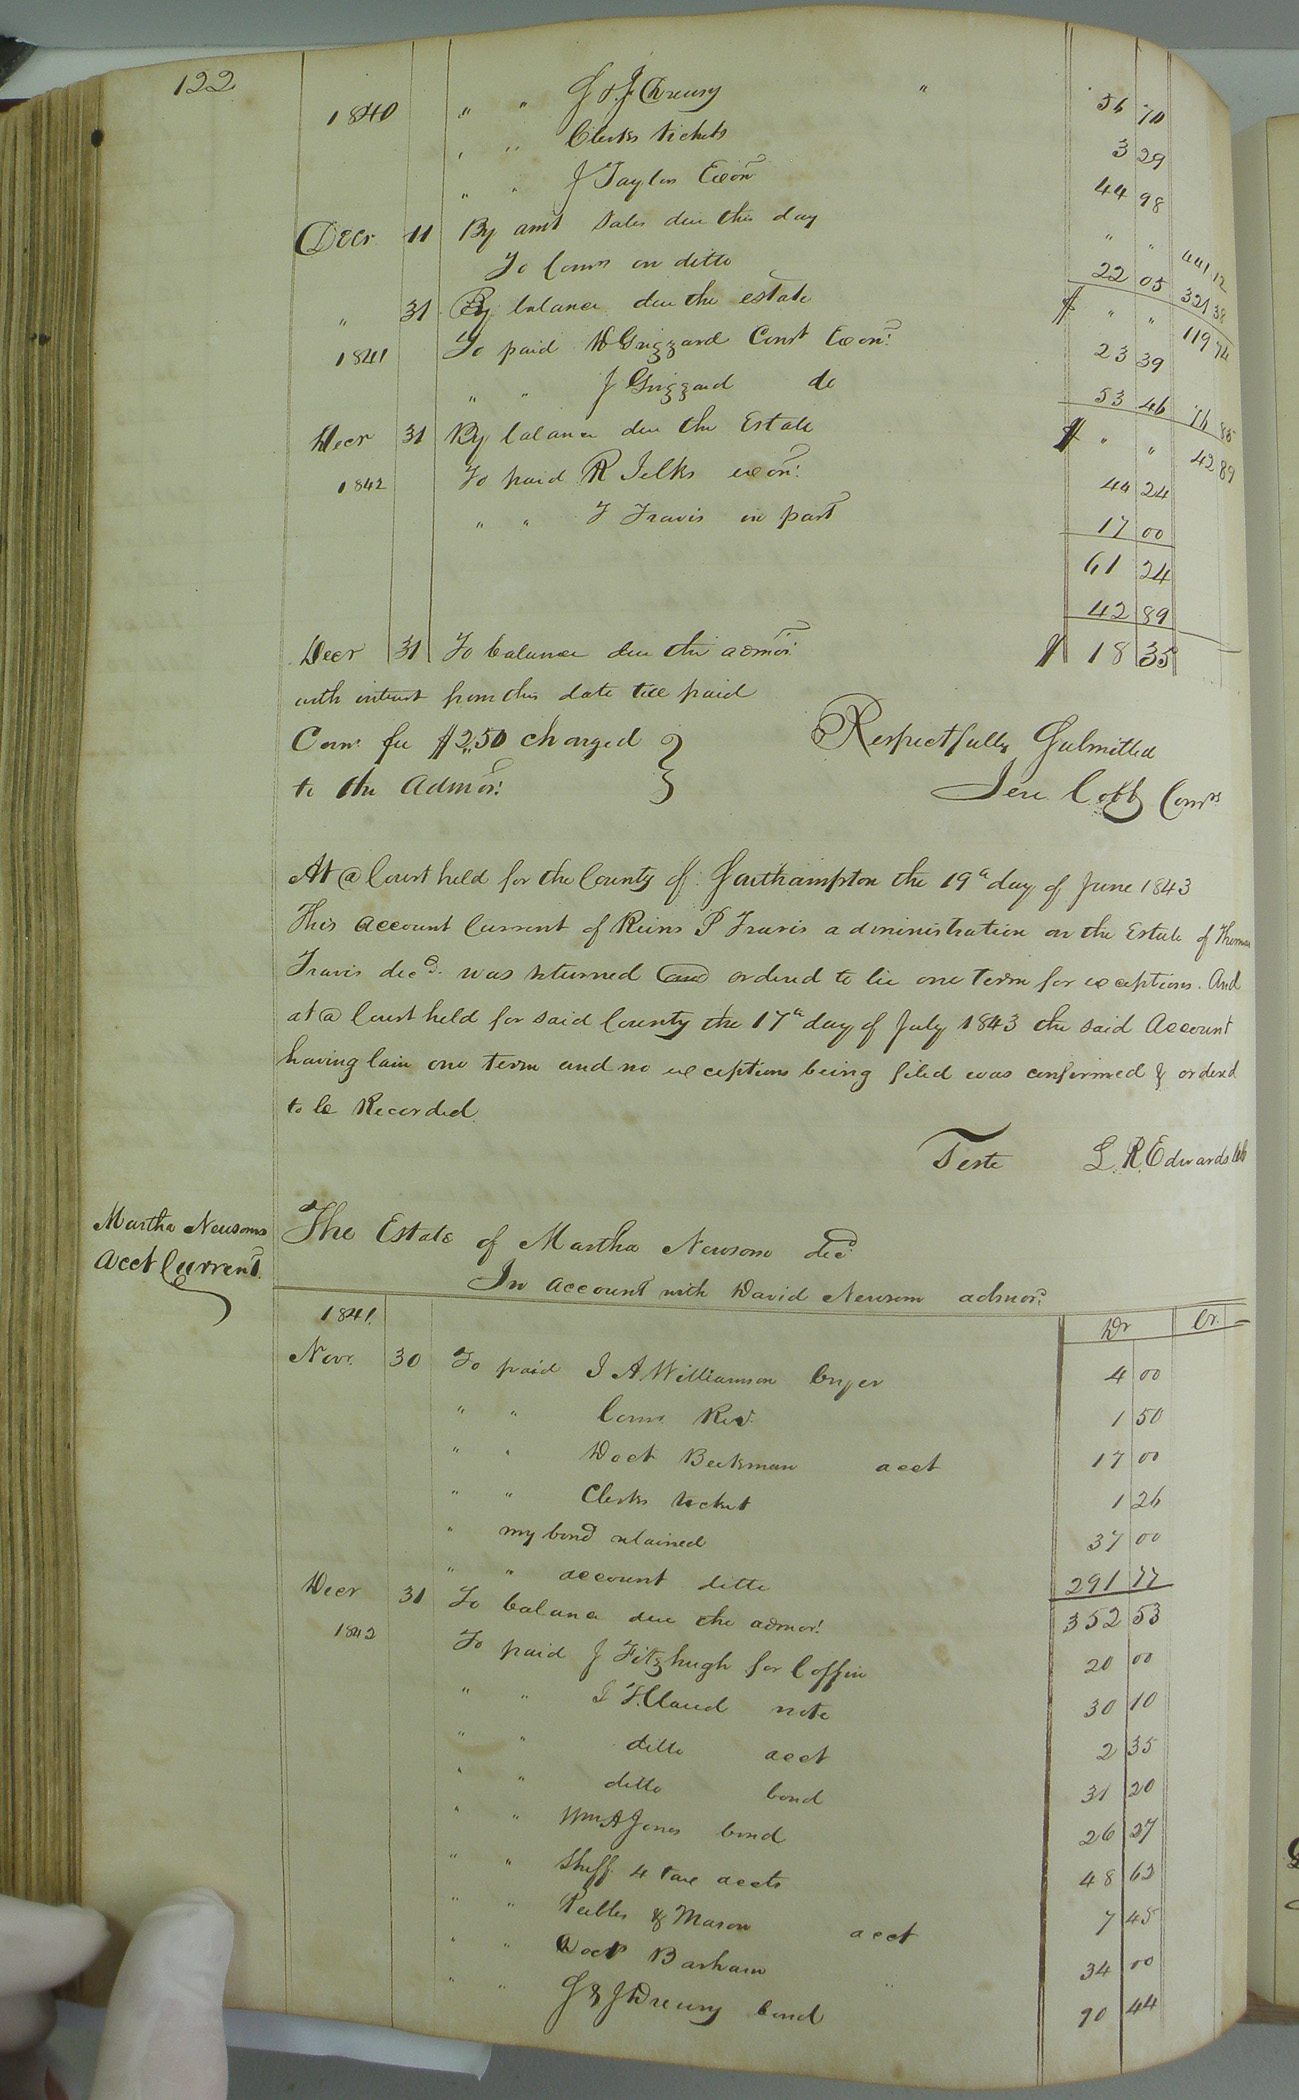 122
1840 " " J & J Drewry " 56 70
" " Clerks tickets 3 29
" " J Taylor Exon 44 98
Decr 11 By amt sales due this day " " 441 12
To Coms on ditto 22 05 321 38
" 31 By balance due the estate $ " " 119 74
1841 To paid W Grizzard Const Exon: 23 39
" " J Grizzard do 53 46 76 85
Decr 31 By balance due the Estate $ " " 42 89
1842 To paid R Jelks exon: 44 24
" " T Travis in part 17 00
61 24
42 89
Decr 31 To balance due the admor: $ 18 35
with interest from this date till paid
Com: fee $2.50 charged
to the Admor:
Respectfully Submitted
Jere Cobb Comrs
At a Court held for the County of Southampton the 19th day of June 1843
This account Current of Reins P Travis administration on the Estate of Thomas
Travis decd. was returned and ordered to lie one term for exceptions. And
at a Court held for said County the 17th day of July 1843 the said Account
having lain one term and no exceptions being filed was confirmed & ordered
to be Recorded.
Teste L. R. Edwards Clk
Martha Newsoms
Acct Current.
The Estate of Martha Newsom decd
In account with David Newsom admor:
1841. Dr Cr.
Novr. 30 To paid J A Williamson Cryer 4 00
" " Coms Rev. 1 50
" " Doct Beekman acct 17 00
" " Clerks ticket 1 26
" my bond retained 37 00
" " account ditto 291 77
Decr 31 To balance due the admor! 352 53
1842 To paid J Fitzhugh for Coffin 20 00
" " note 30 10
" " ditto acct 2 35
" " ditto bond 31 20
" " Wm A Jones bond 26 27
" " Sheff 4 tax accts 48 62
" " Peebles & Mason acct 7 45
" " Doct Barham " 34 00
" " J & J Drewry bond 90 44